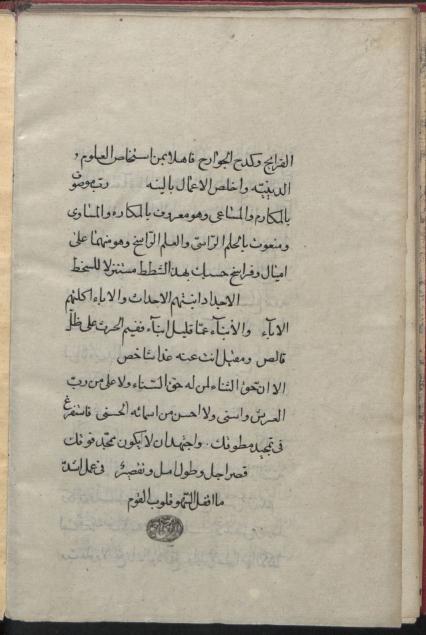 القرايح وكدح الجوارح فاهلا بمن استخاص العلوم
الدينيه واخلص الاعمال بالنيه رب موصوف
بالمكارم والمساعى وهو معروف بالمكاره والمساوى
ومنعوت بالحلم الراسى والعلم الراسخ وهو منهما على
اميال وفراسخ حسبك بهذا الشطط مستنزلا للسخط
الاجداد ابنتهم الاجداث والاباء اكلتهم
الاباء والأبنآء عما قليل انباء ففيم الحرص على ظلّ
قالص ومقيل انت عنه غدا شاخص
الا ان حق الثناء لمن له حق السناء ولا على من رب
العرش واسنى ولا احسن من اسمائه الحسنى فاستفرغ
فى تمجيد مطوقك واجتهد ان لا يكون محمد فوقك
قصر اجل وطول امل وتقصير فى عمل
ما اغفل قلوب القوم